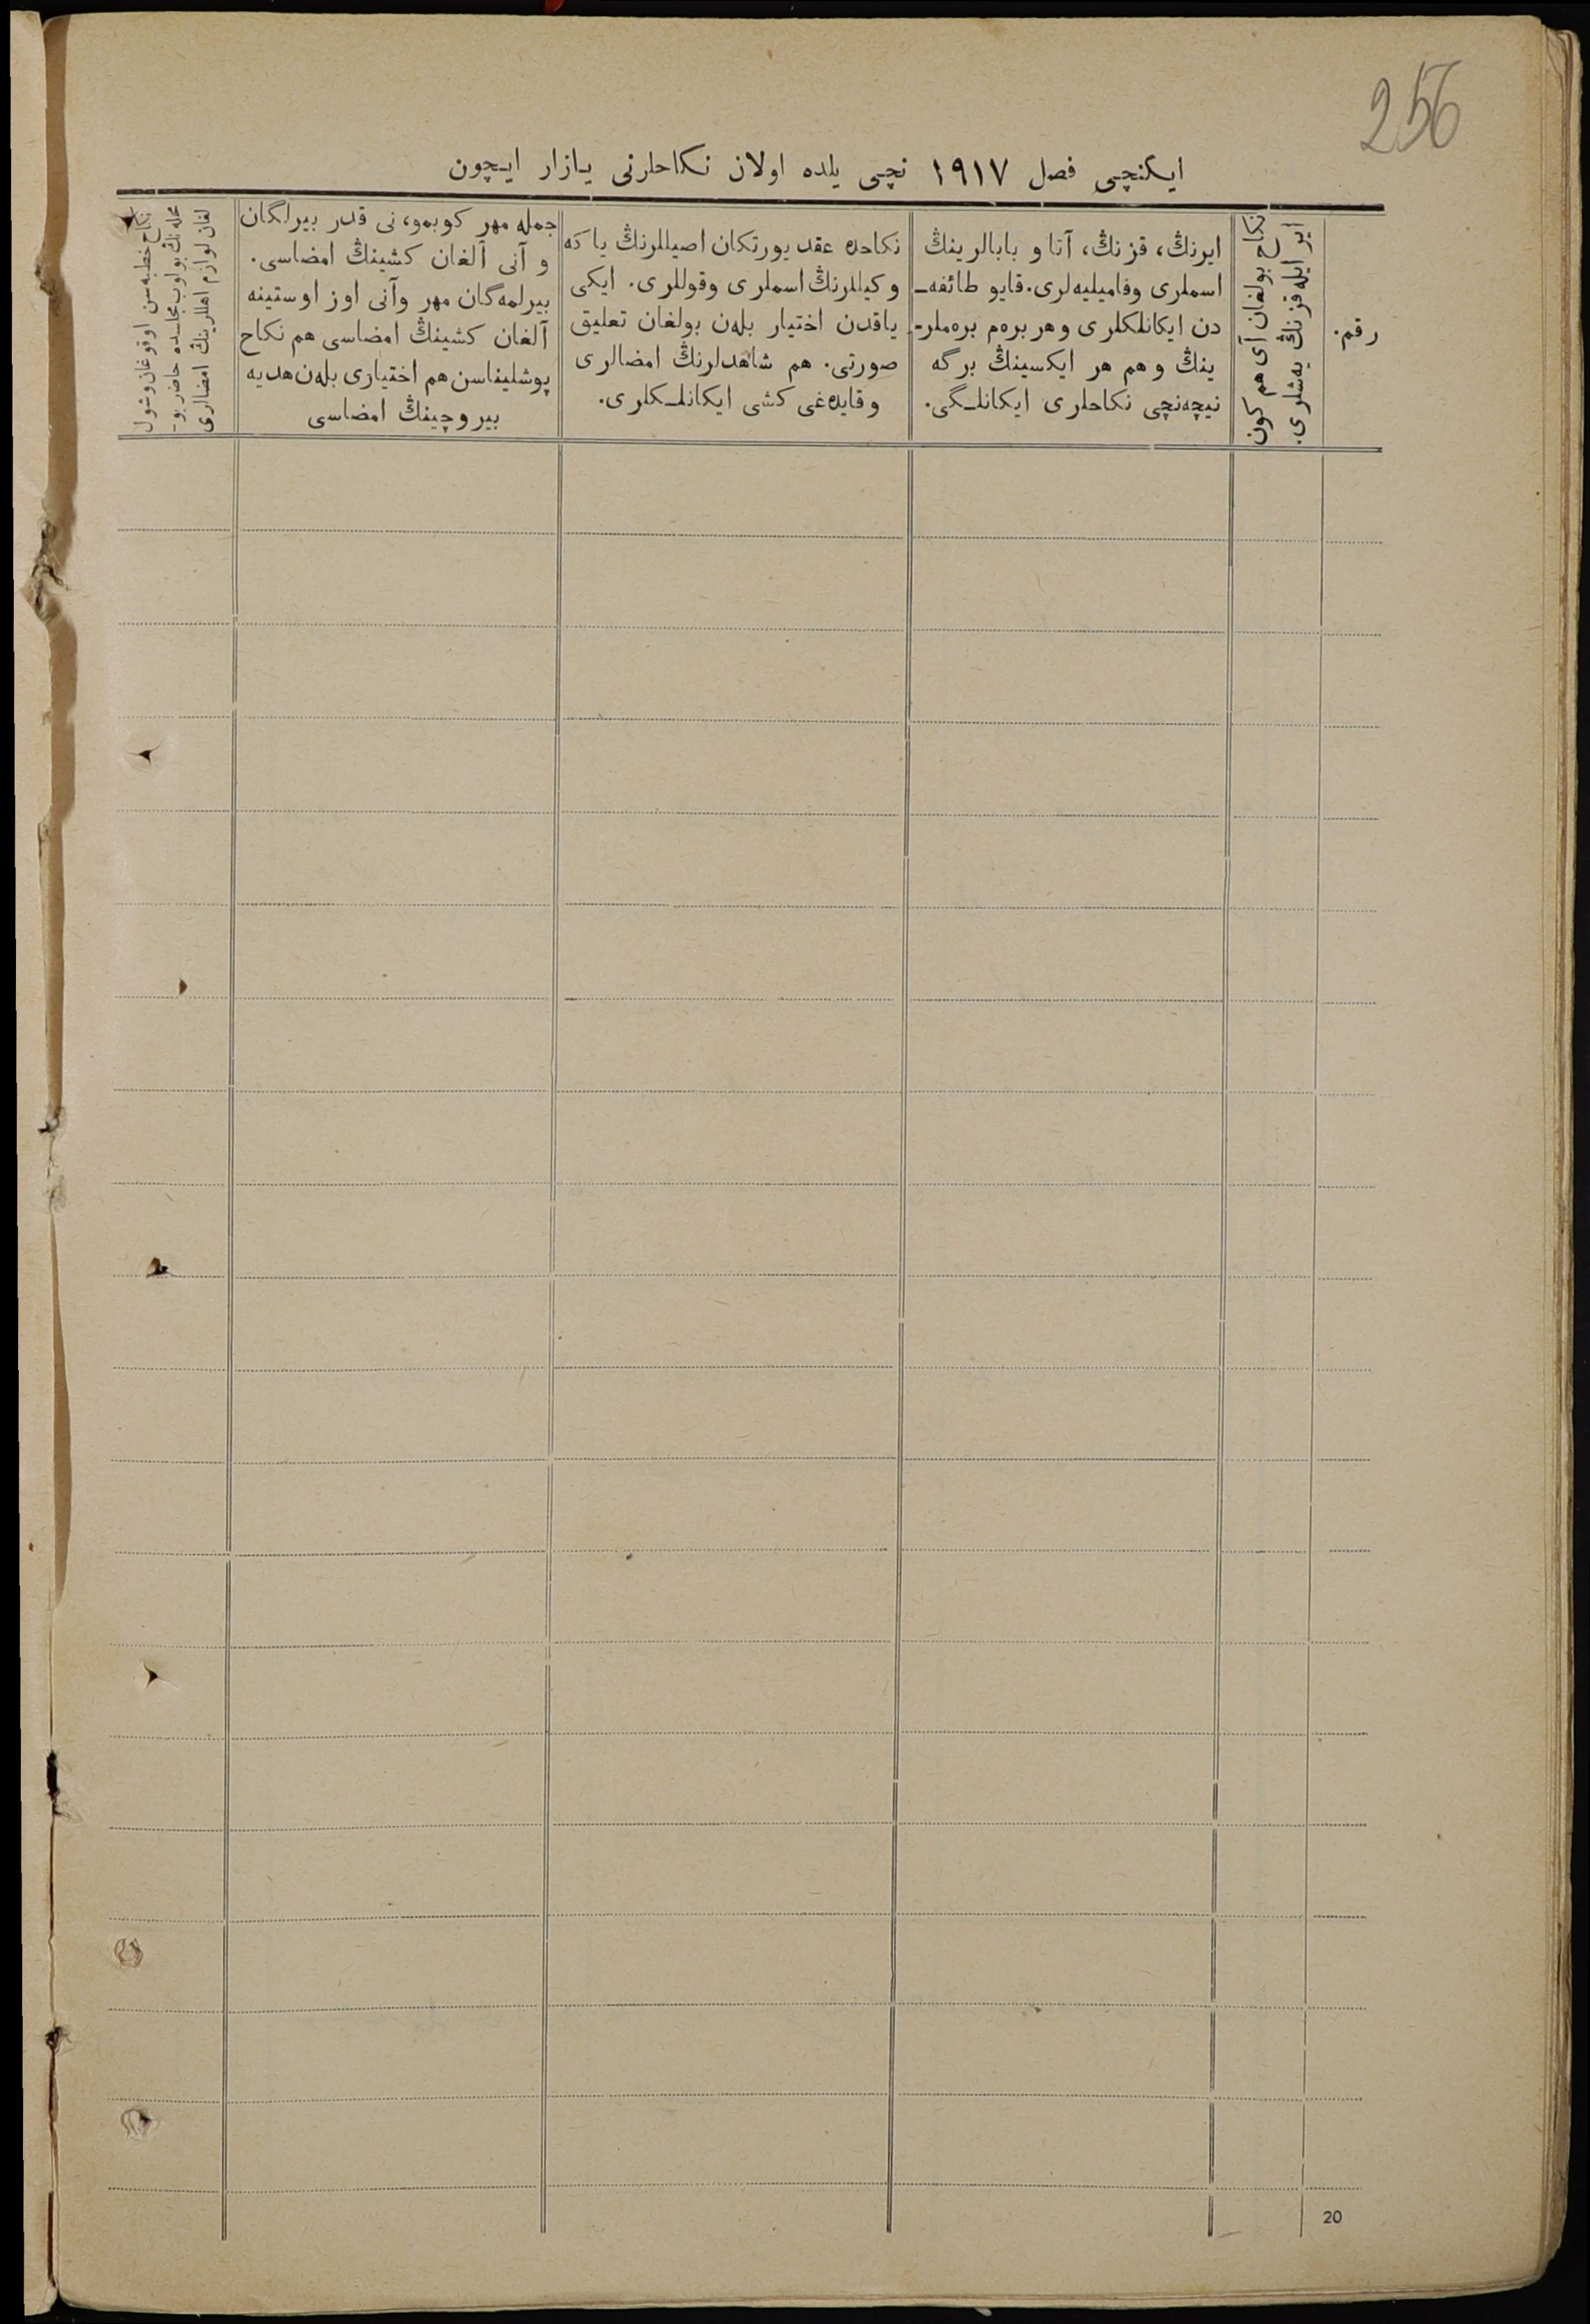 256
ایكنچی فصل ١٩١٧ نچی یلده اولان نكاحلرنی یازار ایچون
رقم.
نكاح بولغان آی هم كون
ایر ایله قزنڭ یه‌شلری.
ایرنڭ، قزنڭ، آتا و بابالرینڭ
اسملری وفامیلیه‌لری. قایو طائفه‌ـ
دن ایكانلكلری وهر بره‌م بره‌ملر-
ینڭ وهم هر ایكسینڭ برگه
نیچه‌نچی نكاحلری ایكانلـگی.
نكاحده عقد یورتكان اصیللرنڭ یا كه
وكیللرنڭ اسملری وقوللری. ایكی
یاقدن اختیار بله‌ن بولغان تعلیق
صورتی. هم شاهدلرنڭ امضالری
وقایده‌غی كشی ایكانلـكلری.
جمله مهر كوبمو، نی قدر بیرلگان
و آنی آلغان كشینڭ امضاسی.
بیرلمه‌گان مهر وآنی اوز اوستینه
آلغان كشینڭ امضاسی هم نكاح
پوشلیناسن هم اختیاری بله‌ن هدیه
بیروچینڭ امضاسی
نكاح خطبه‌سن اوقوغان وشول
محله‌نڭ بولوب مجلسده حاضر بو-
لغان لوازم اهللرینڭ امضالری
20